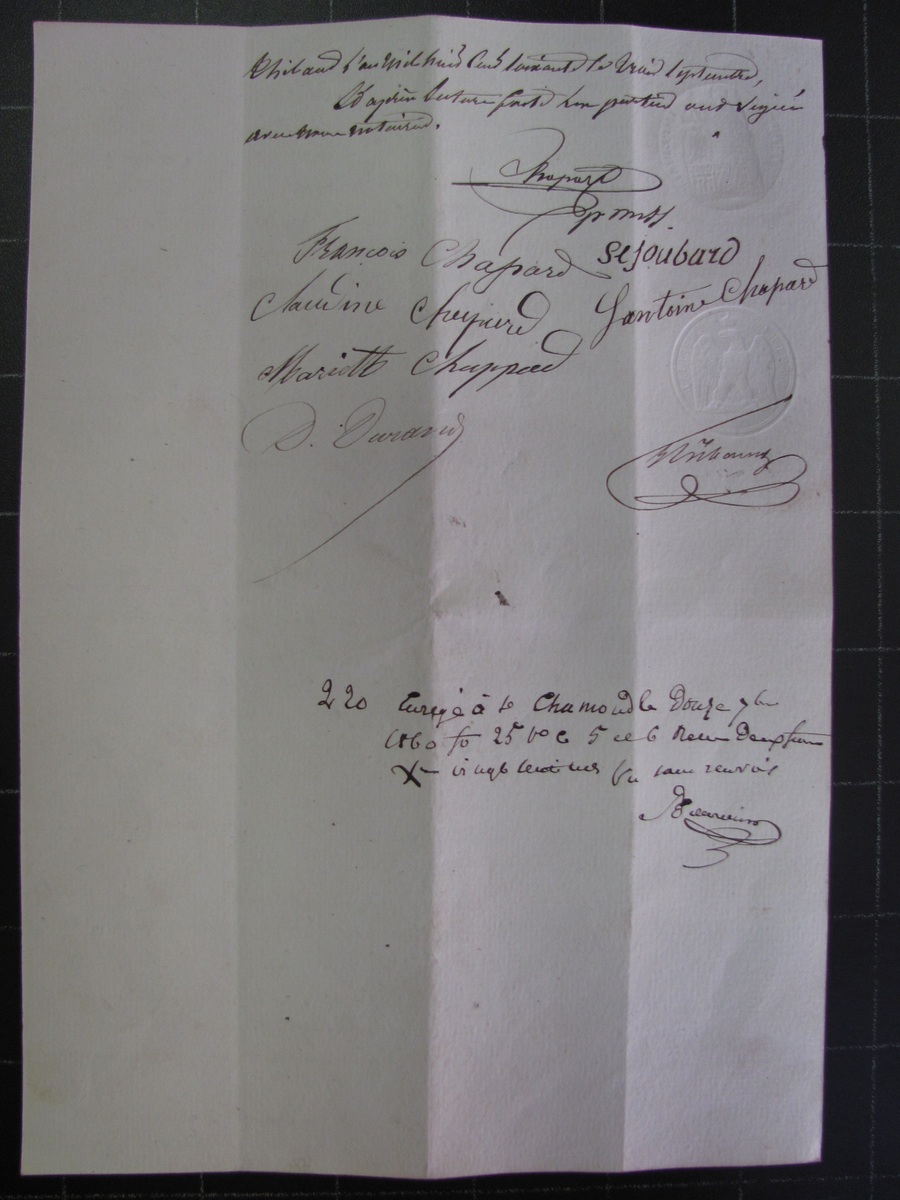 Thibaud l'an mil huit cent soixante le trois septembre,
Et après lecture faite les parties ont signé
avec nous notaires.
Chapard
François Chapard Sejoubard
Claudine Chapard Jantoine Chapard
Mariette Chappard
D. Durand
Thibaud
220 Enregé à St Chamond le Douze 7bre
1860 fo 25 vo c 5 et 6 Reçu Deux francs
vingt centimes sans renvois